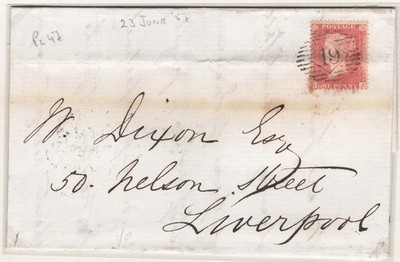 23 JUNE '57
Pl 47
19
ONE PENNY
W. Dixon Esq
50. Nelson Street
Liverpool